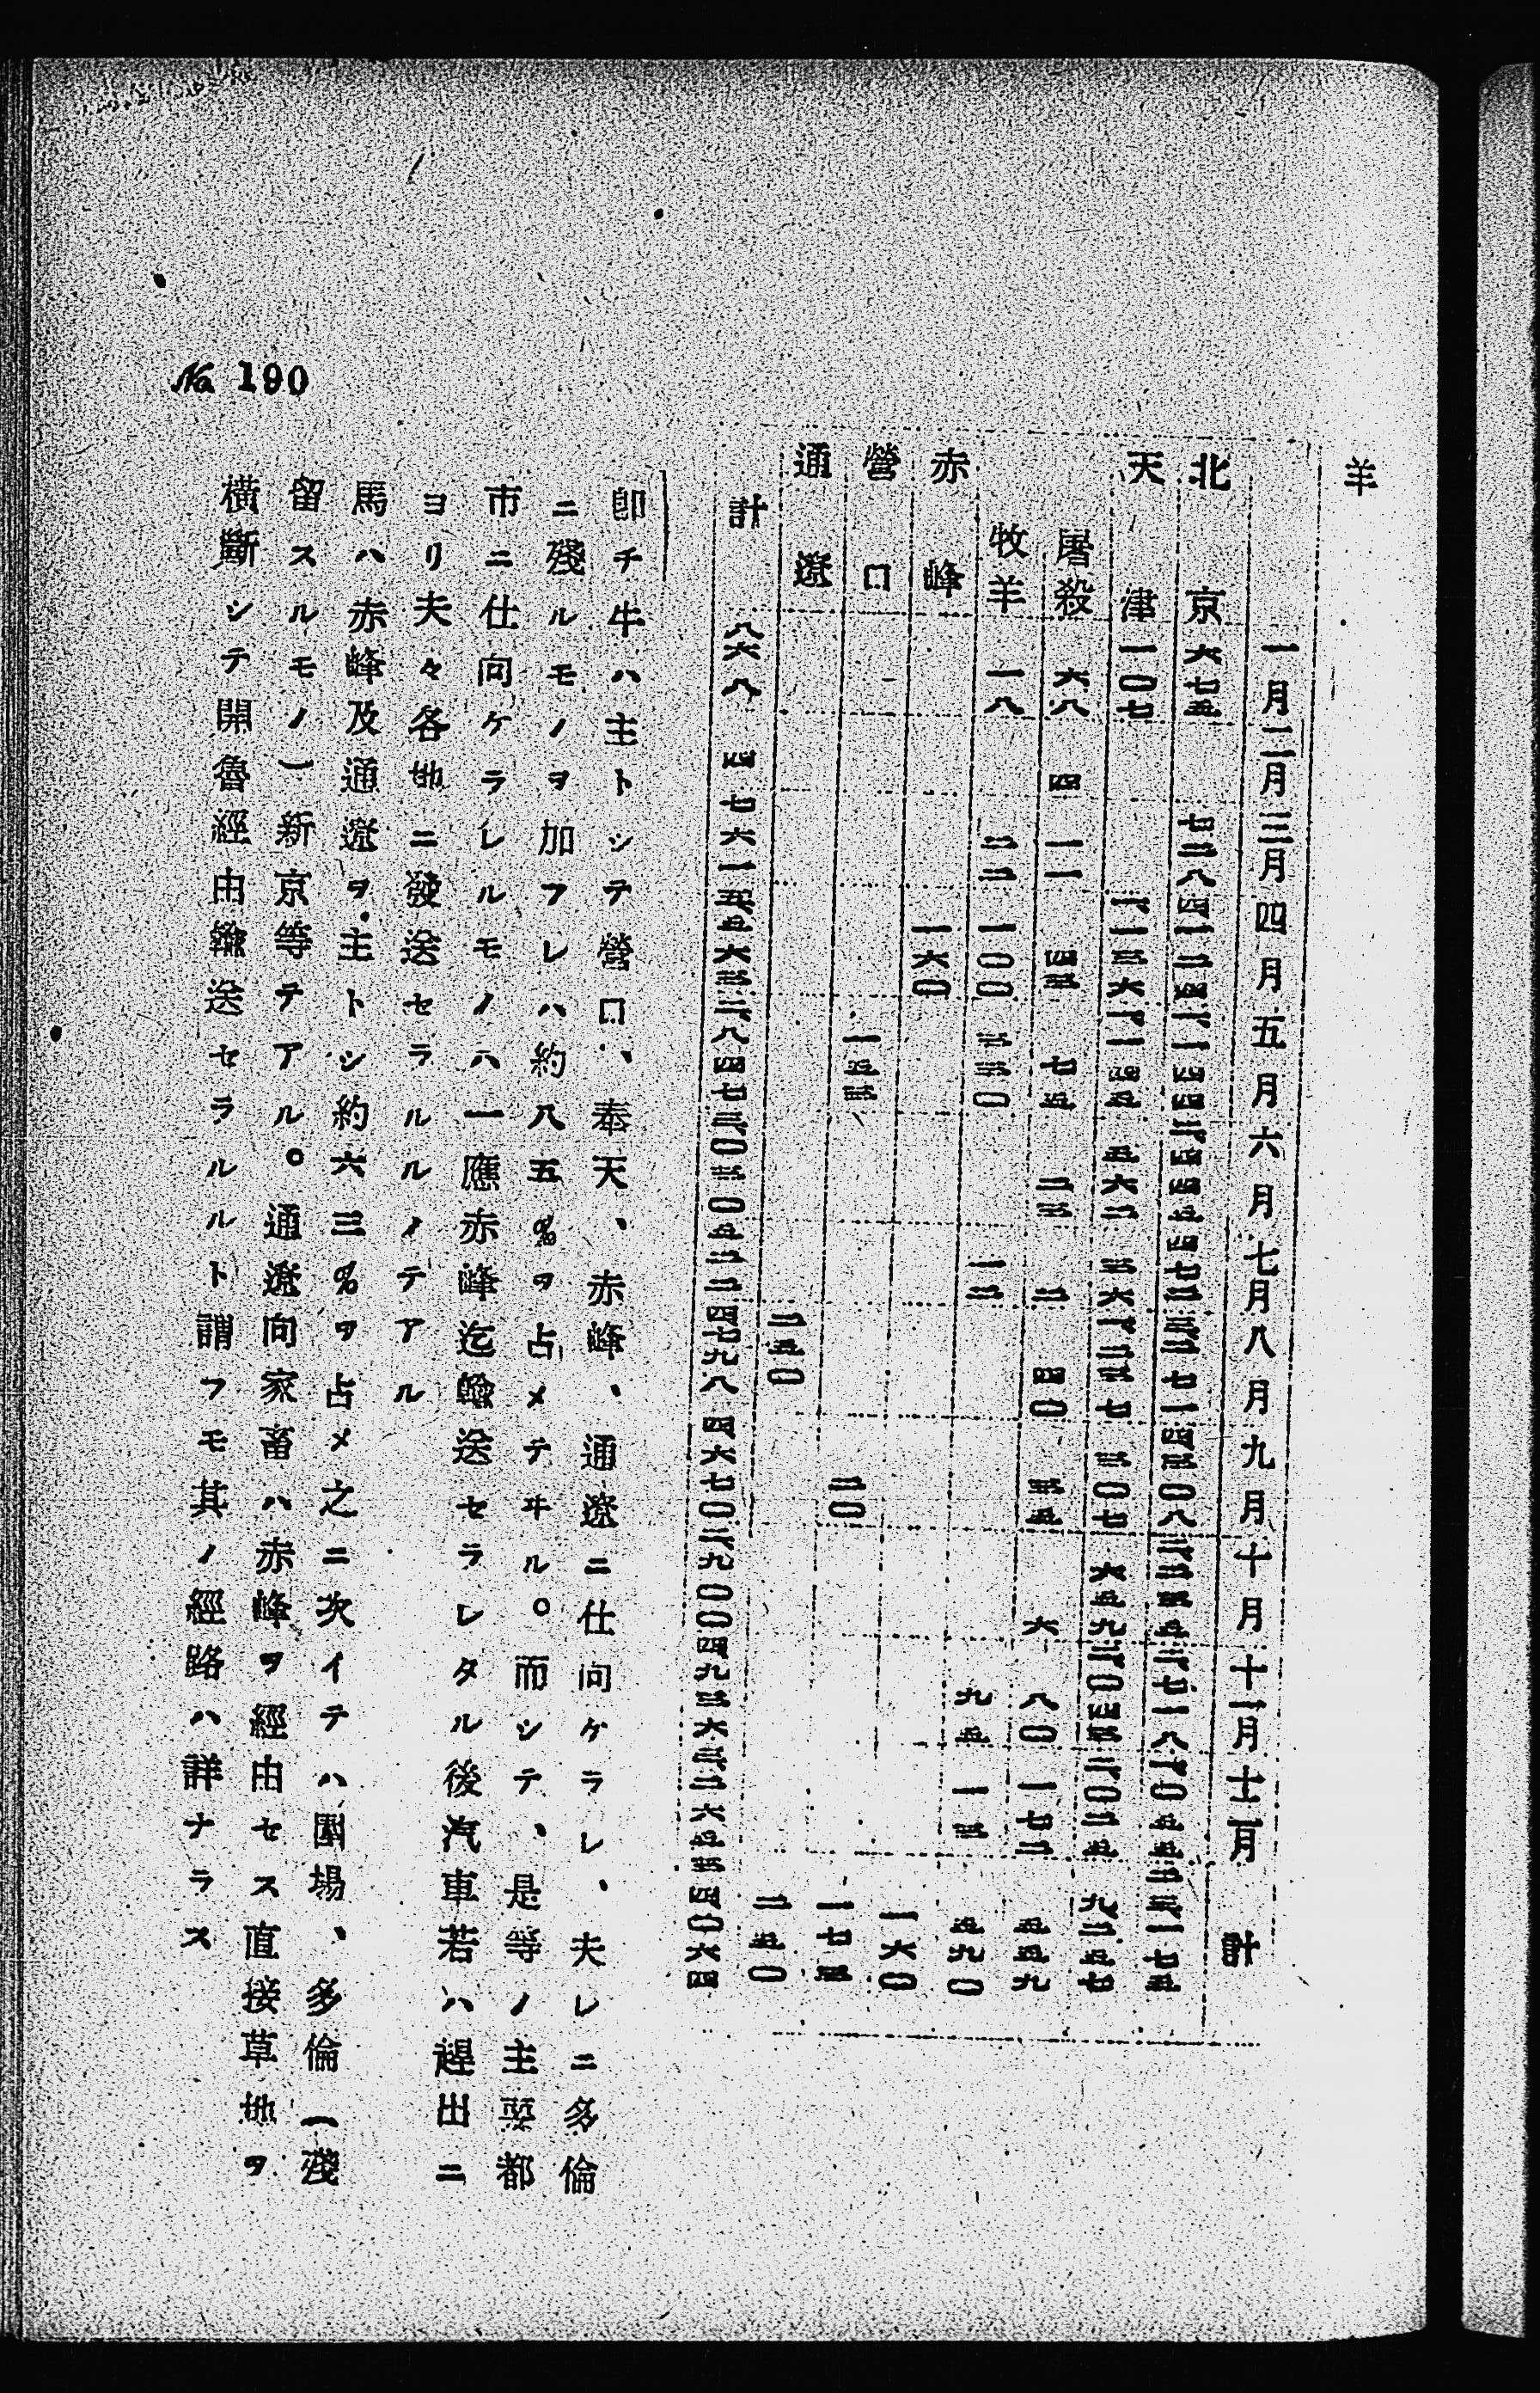 羊
一月 二月 三月 四月 五月 六月 七月 八月 九月 十月 十一月 十二月 計
北京 六七五 七二八 四一二四 一一四四 二四四五 四七二 三二七一 四三〇八 二二三五 二七一八 一〇五五 二三一七五
天津 一〇七 一一三六 一一四五 五六二 三六 一二三七 三〇七 六五九 二〇四三 二〇二五 九二五七
屠殺 六八 四 一一 四三 七五 二三 二 四〇 三五 六 八〇 一七二 五五九
牧羊 一八 二二 一〇〇 三三〇 一二 九五 一三 五九〇
赤峰 一六〇 一六〇
營口 一五三 二〇 一七三
通遼 二五〇 二五〇
計 八六八 四 七六一 五五六三 二八四七 三〇三〇 五二二 四七九八 四六七〇 二九〇〇 四九三六 三二六五 三四〇六四
卽チ牛ハ主トシテ營口、奉天、赤峰、通遼ニ仕向ケラレ、夫レニ多倫
ニ殘ルモノヲ加フレハ約八五％ヲ占メテヰル。而シテ、是等ノ主要都
市ニ仕向ケラレルモノハ一應赤峰迄輸送セラレタル後汽車若ハ趕出ニ
ヨリ夫々各地ニ發送セラルルノテアル
馬ハ赤峰及通遼ヲ主トシ約六三％ヲ占メ之ニ次イテハ圍場、多倫（殘
留スルモノ）新京等テアル。通遼向家畜ハ赤峰ヲ經由セス直接草地ヲ
橫斷シテ開魯經由輸送セラルルト謂フモ其ノ經路ハ詳ナラス
No. 190